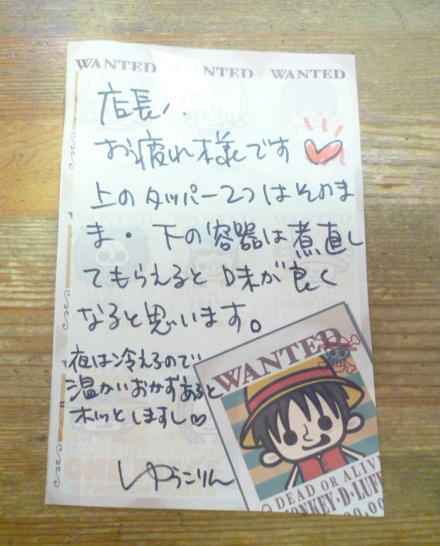 WANTED WANTED WANTED
店長!
お疲れ様です♡
上のタッパー2つはそのま
ま・下の容器は煮直し
てもらえると味が良く
なると思います。
夜は冷えるので
温かいおかずあると
ホッとしますし♡
ゆうこりん
WANTED
DEAD OR ALIVE
MONKEY・D・LUFF